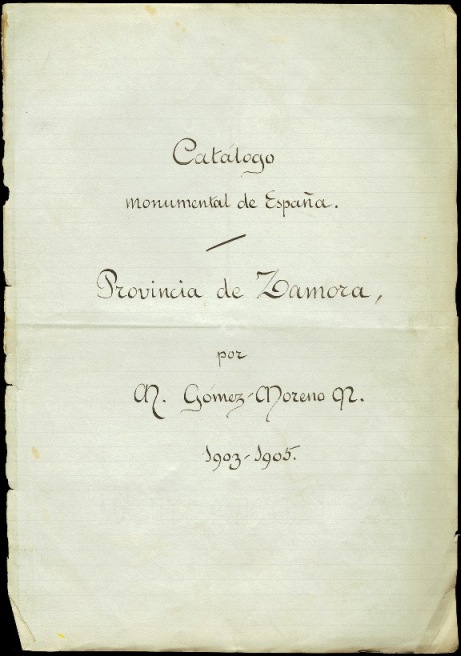 Catálogo
monumental de España.
Provincia de Zamora,
por
M. Gómez-Moreno M.
1903-1905.